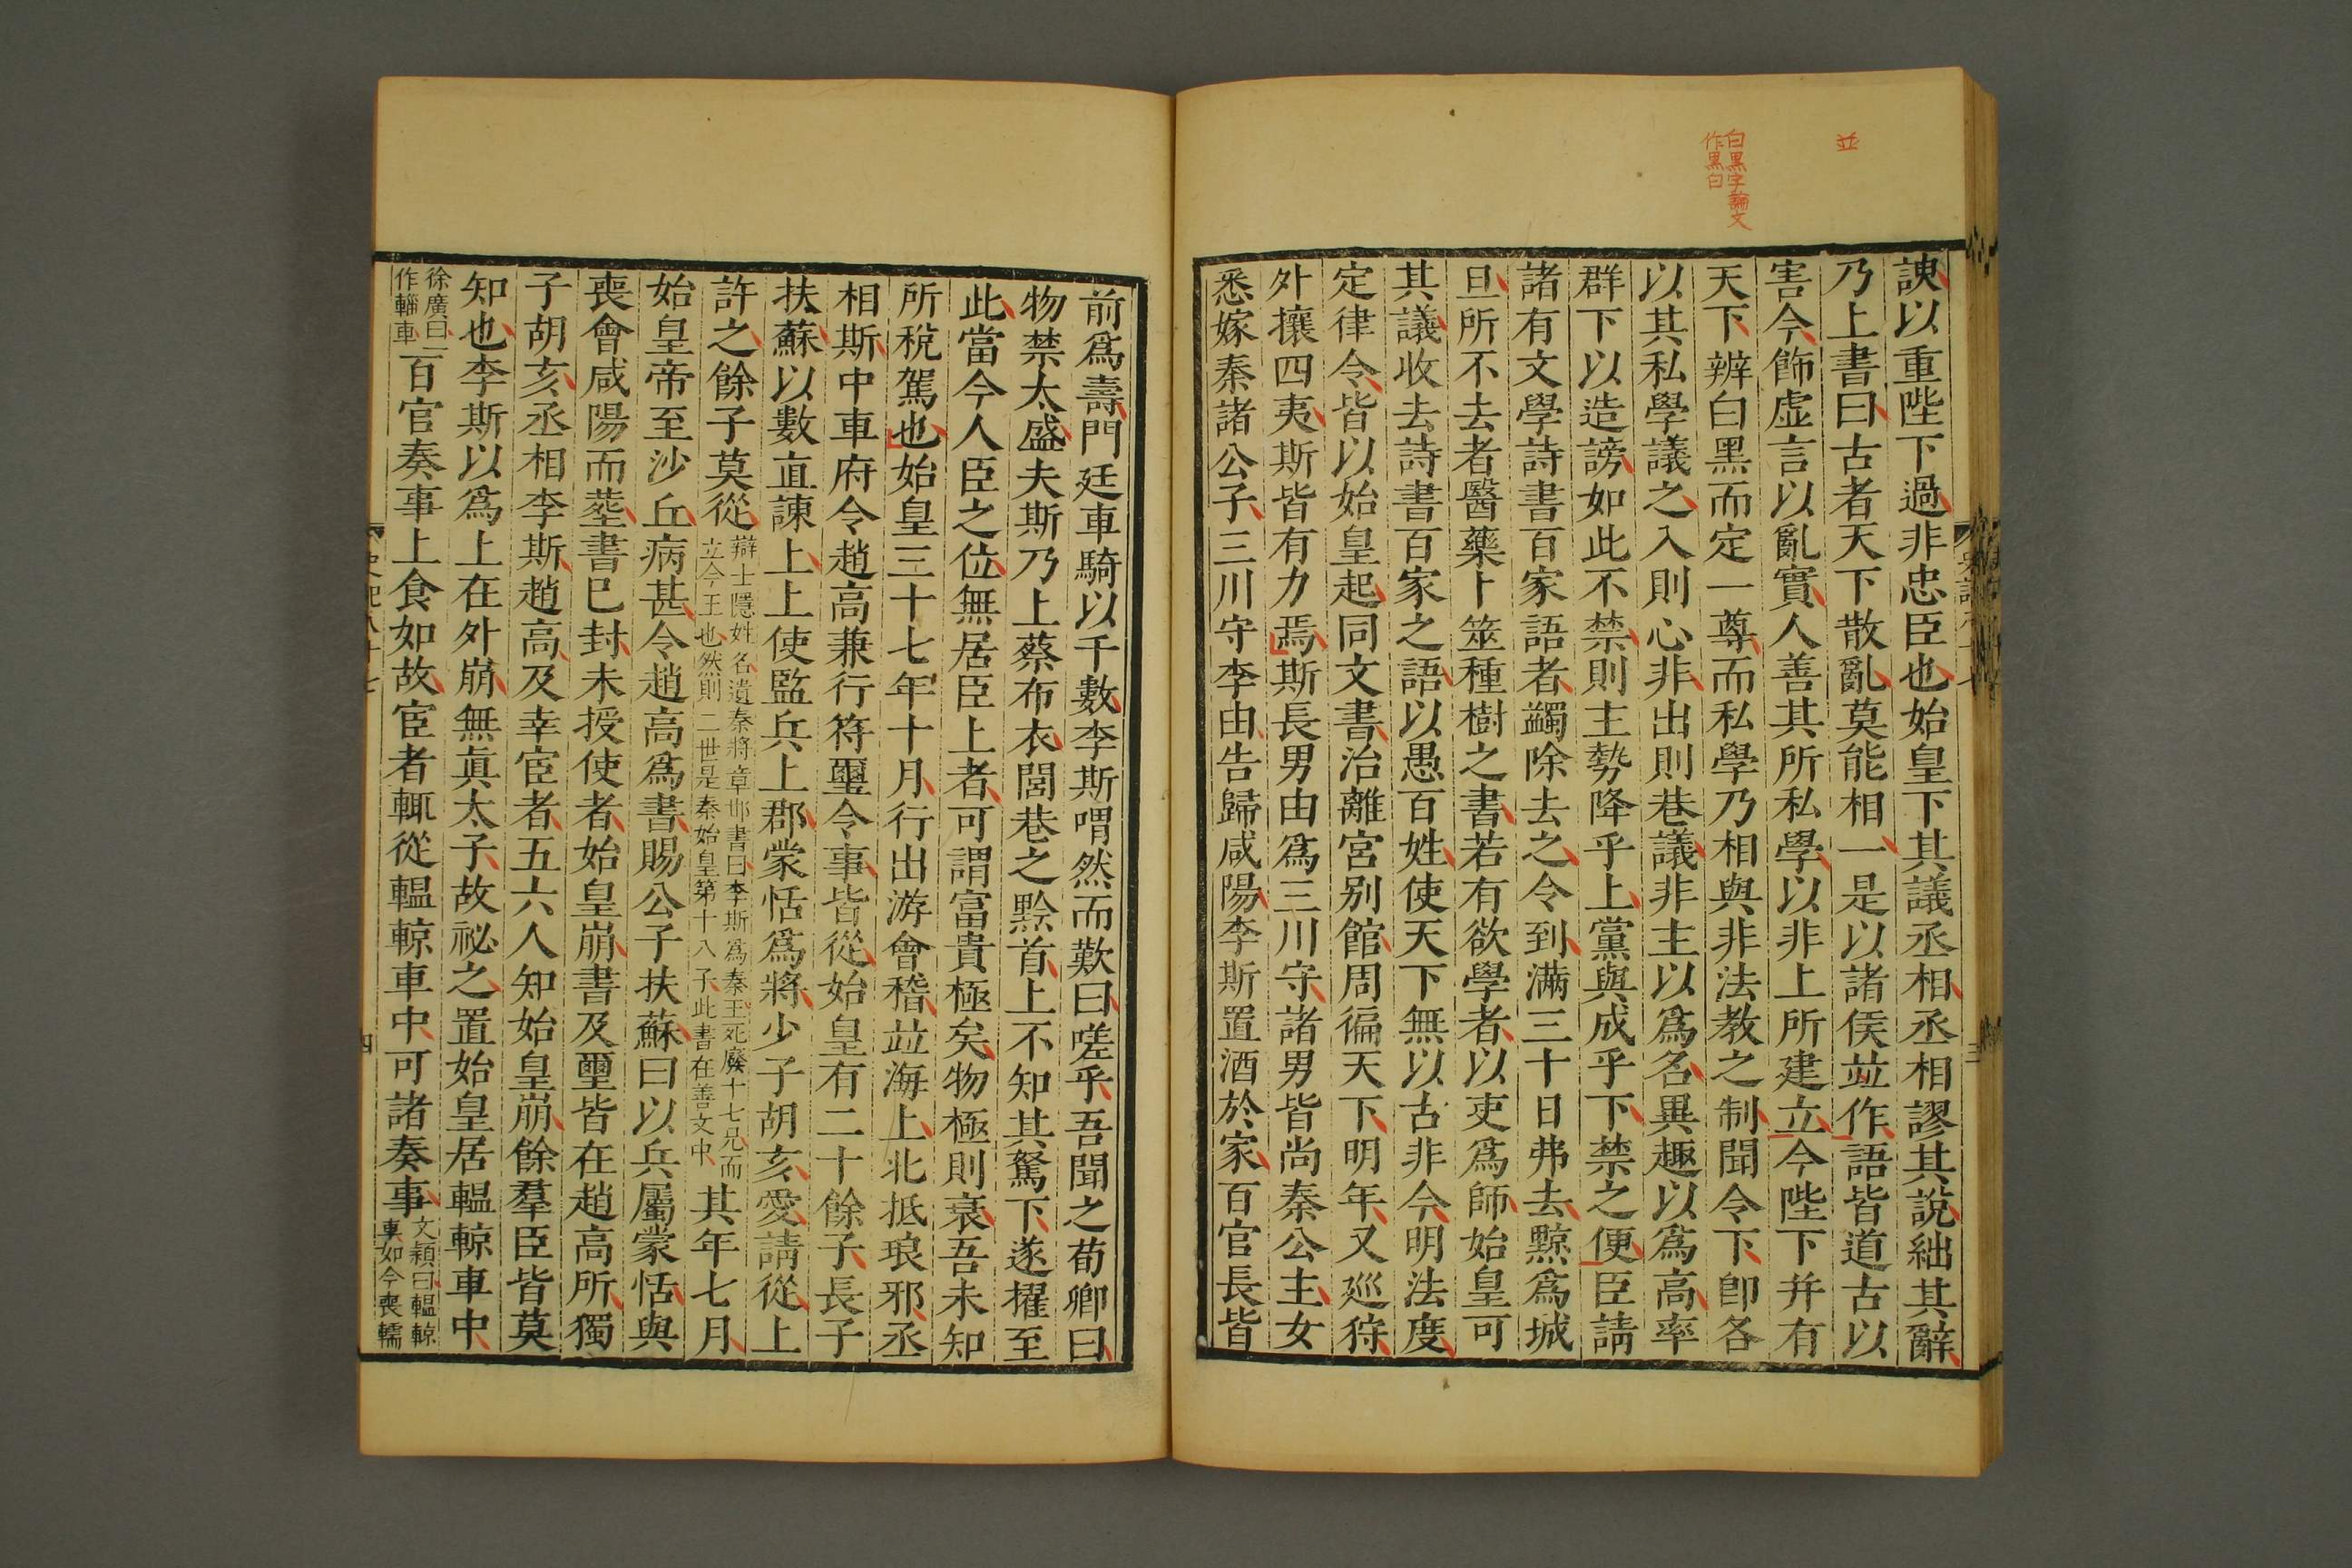 並
白黒字論文
作黒白
諛以重陛下過非忠臣也始皇下其議丞相丞相謬其說絀其辭
乃上書曰古者天下散亂莫能相一是以諸侯竝作語皆道古以
害今飾虛言以亂實人善其所私學以非上所建立今陛下并有
天下辨白黑而定一尊而私學乃相與非法教之制聞令下卽各
以其私學議之入則心非出則巷議非主以爲名異趣以爲高率
群下以造謗如此不禁則主勢降乎上黨與成乎下禁之便臣請
諸有文學詩書百家語者蠲除去之令到滿三十日弗去黥爲城
旦所不去者醫藥卜筮種樹之書若有欲學者以吏爲師始皇可
其議收去詩書百家之語以愚百姓使天下無以古非今明法度
定律令皆以始皇起同文書治離宮别館周徧天下明年又巡狩
外攘四夷斯皆有力焉斯長男由爲三川守諸男皆尚秦公主女
悉嫁秦諸公子三川守李由告歸咸陽李斯置酒於家百官長皆
史記八十七
三
前爲壽門廷車騎以千數李斯喟然而歎曰嗟乎吾聞之荀卿曰
物禁太盛夫斯乃上蔡布衣閭巷之黔首上不知其駑下遂擢至
此當今人臣之位無居臣上者可謂富貴極矣物極則衰吾未知
所稅駕也始皇三十七年十月行出游會稽竝海上北抵琅邪丞
相斯中車府令趙高兼行符璽令事皆從始皇有二十餘子長子
扶蘇以數直諫上上使監兵上郡蒙恬爲將少子胡亥愛請從上
許之餘子莫從
辯士隱姓名遺秦將章邯書曰李斯爲秦王死廢十七兄而
立今王也然則二世是秦始皇第十八子此書在善文中
其年七月
始皇帝至沙丘病甚令趙高爲書賜公子扶蘇曰以兵屬蒙恬與
喪會咸陽而葬書已封未授使者始皇崩書及璽皆在趙高所獨
子胡亥丞相李斯趙高及幸宦者五六人知始皇崩餘羣臣皆莫
知也李斯以爲上在外崩無眞太子故祕之置始皇居轀輬車中
徐廣曰一
作輜車
百官奏事上食如故宦者輒從轀輬車中可諸奏事
文穎曰轀輬
車如今喪轜
史記八十七
四